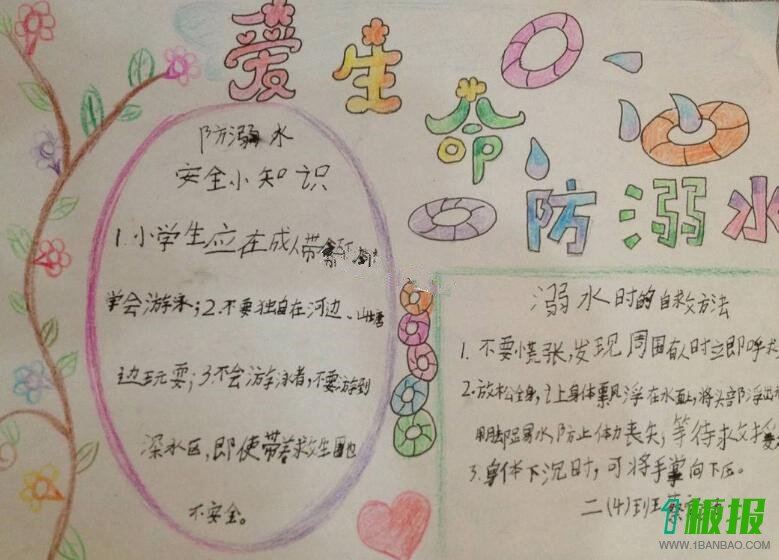 爱生命
防溺水
防溺水
安全小知识
1.小学生应在成人带
学会游泳;2.不要独自在河边、山塘
边玩耍;3.不会游泳者,不要游到
深水区,即使带着救生圈也
不安全。
溺水时的自救方法
1.不要慌张,发现周围有人时立即呼
2.放松全身,让身体飘浮在水面上,将头部浮出
用脚踢水,防止体力丧失,等待救
3.身体下沉时,可将手掌向下压。
二(4)班
1板报
WWW.1BANBAO.COM